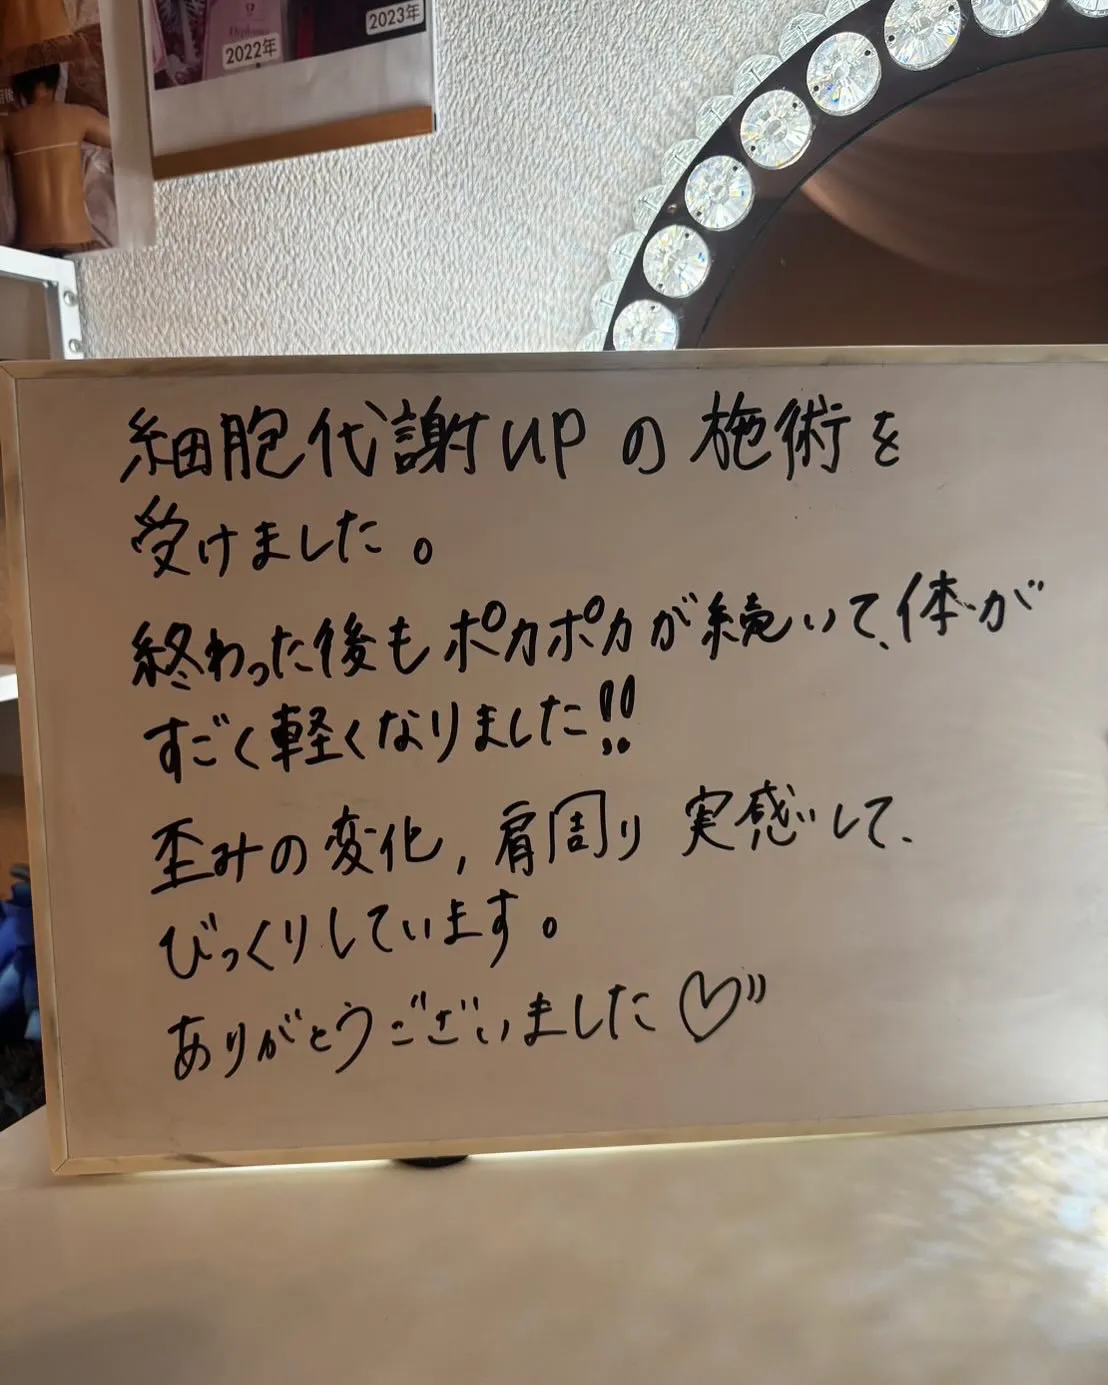 2022年
2023年
細胞代謝UPの施術を
受けました。
終わった後もポカポカが続いて、体が
すごく軽くなりました!!
歪みの変化,肩周り実感して、
びっくりしています。
ありがとうございました♡